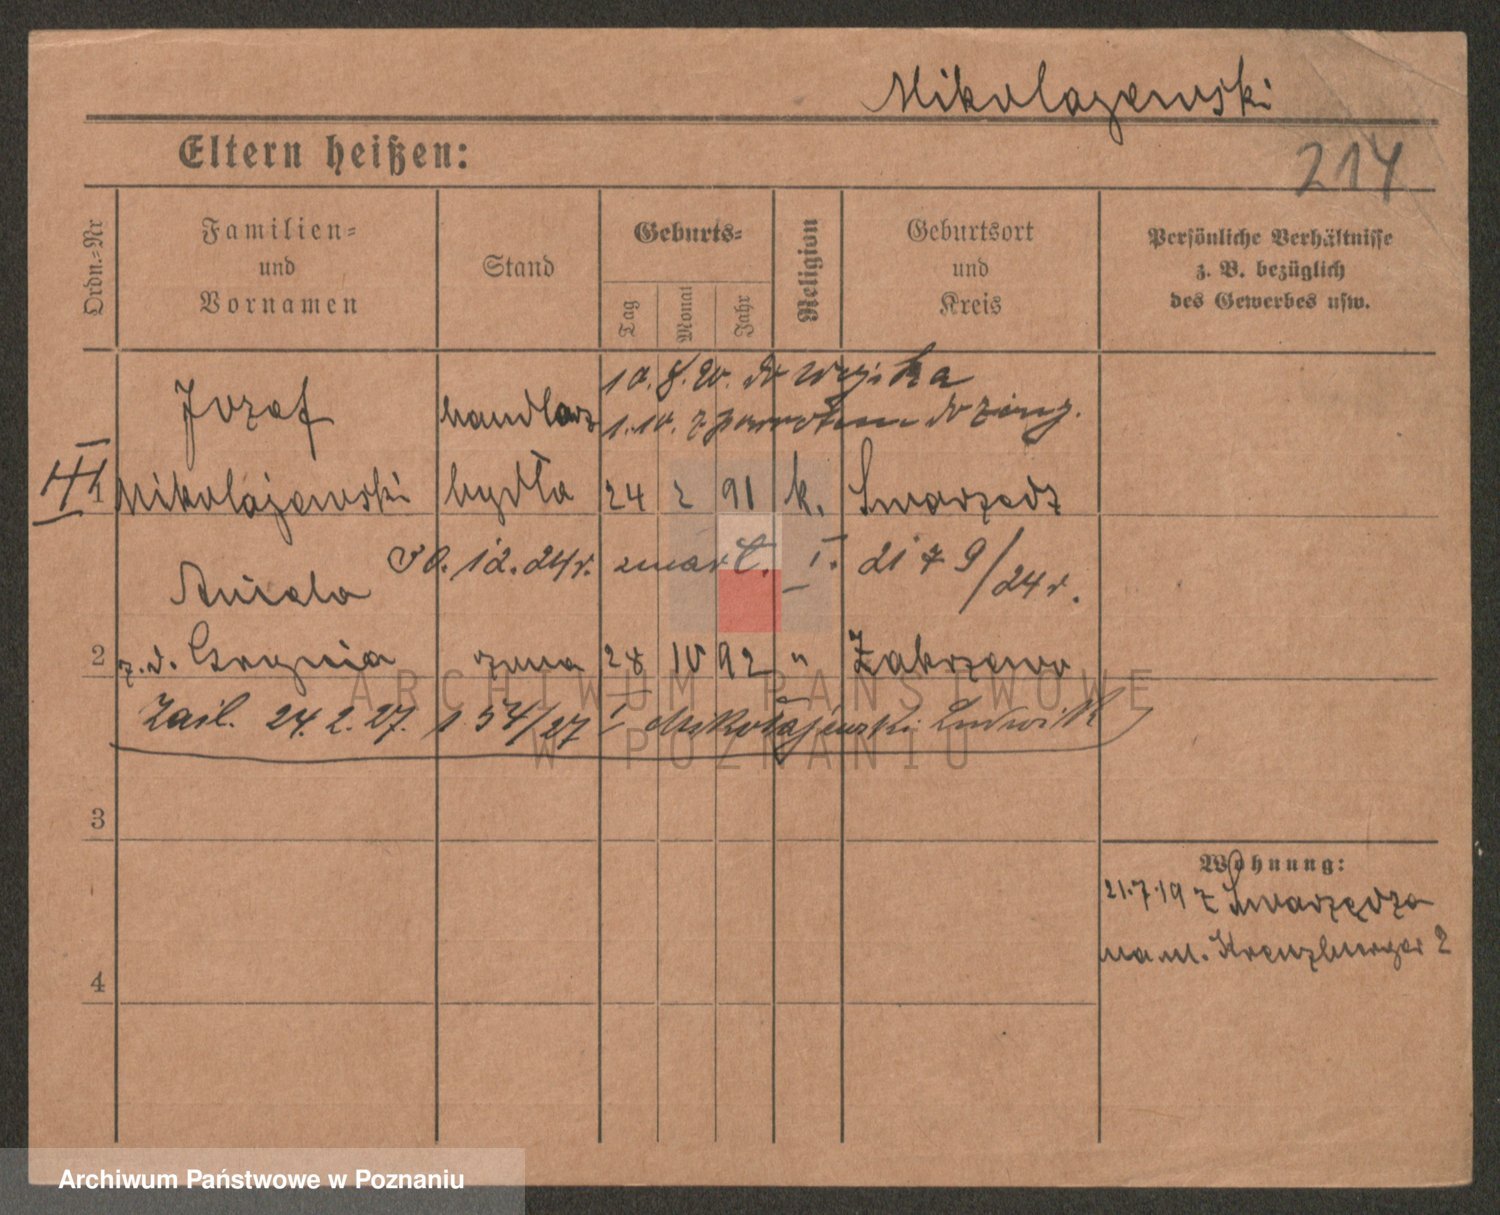 Mikolajewski
Eltern heißen:
214
Ordn.=Nr
Familien=
und
Vornamen
Stand
Geburts=
Tag
Monat
Jahr
Religion
Geburtsort
und
Kreis
Persönliche Verhältnisse
z. B. bezüglich
des Gewerbes usw.
10.8.20. do wojska
1.10. z powrotem do żony.
Jozef handlarz
1 Mikolajewski bydła 24 2 91 k. Swarzedz
30.12.24r. zmart. I. 2179/24r.
Aniela
2 z.d. żona 28 10 92 " Zakrzewo
24.2.27. 1 54/27 Mikołajewski Ludwik
3
4
Wohnung:
21.7.19 z Swarzędza
na ul. Kreuzburger 2
ARCHIWUM PAŃSTWOWE
W POZNANIU
Archiwum Państwowe w Poznaniu